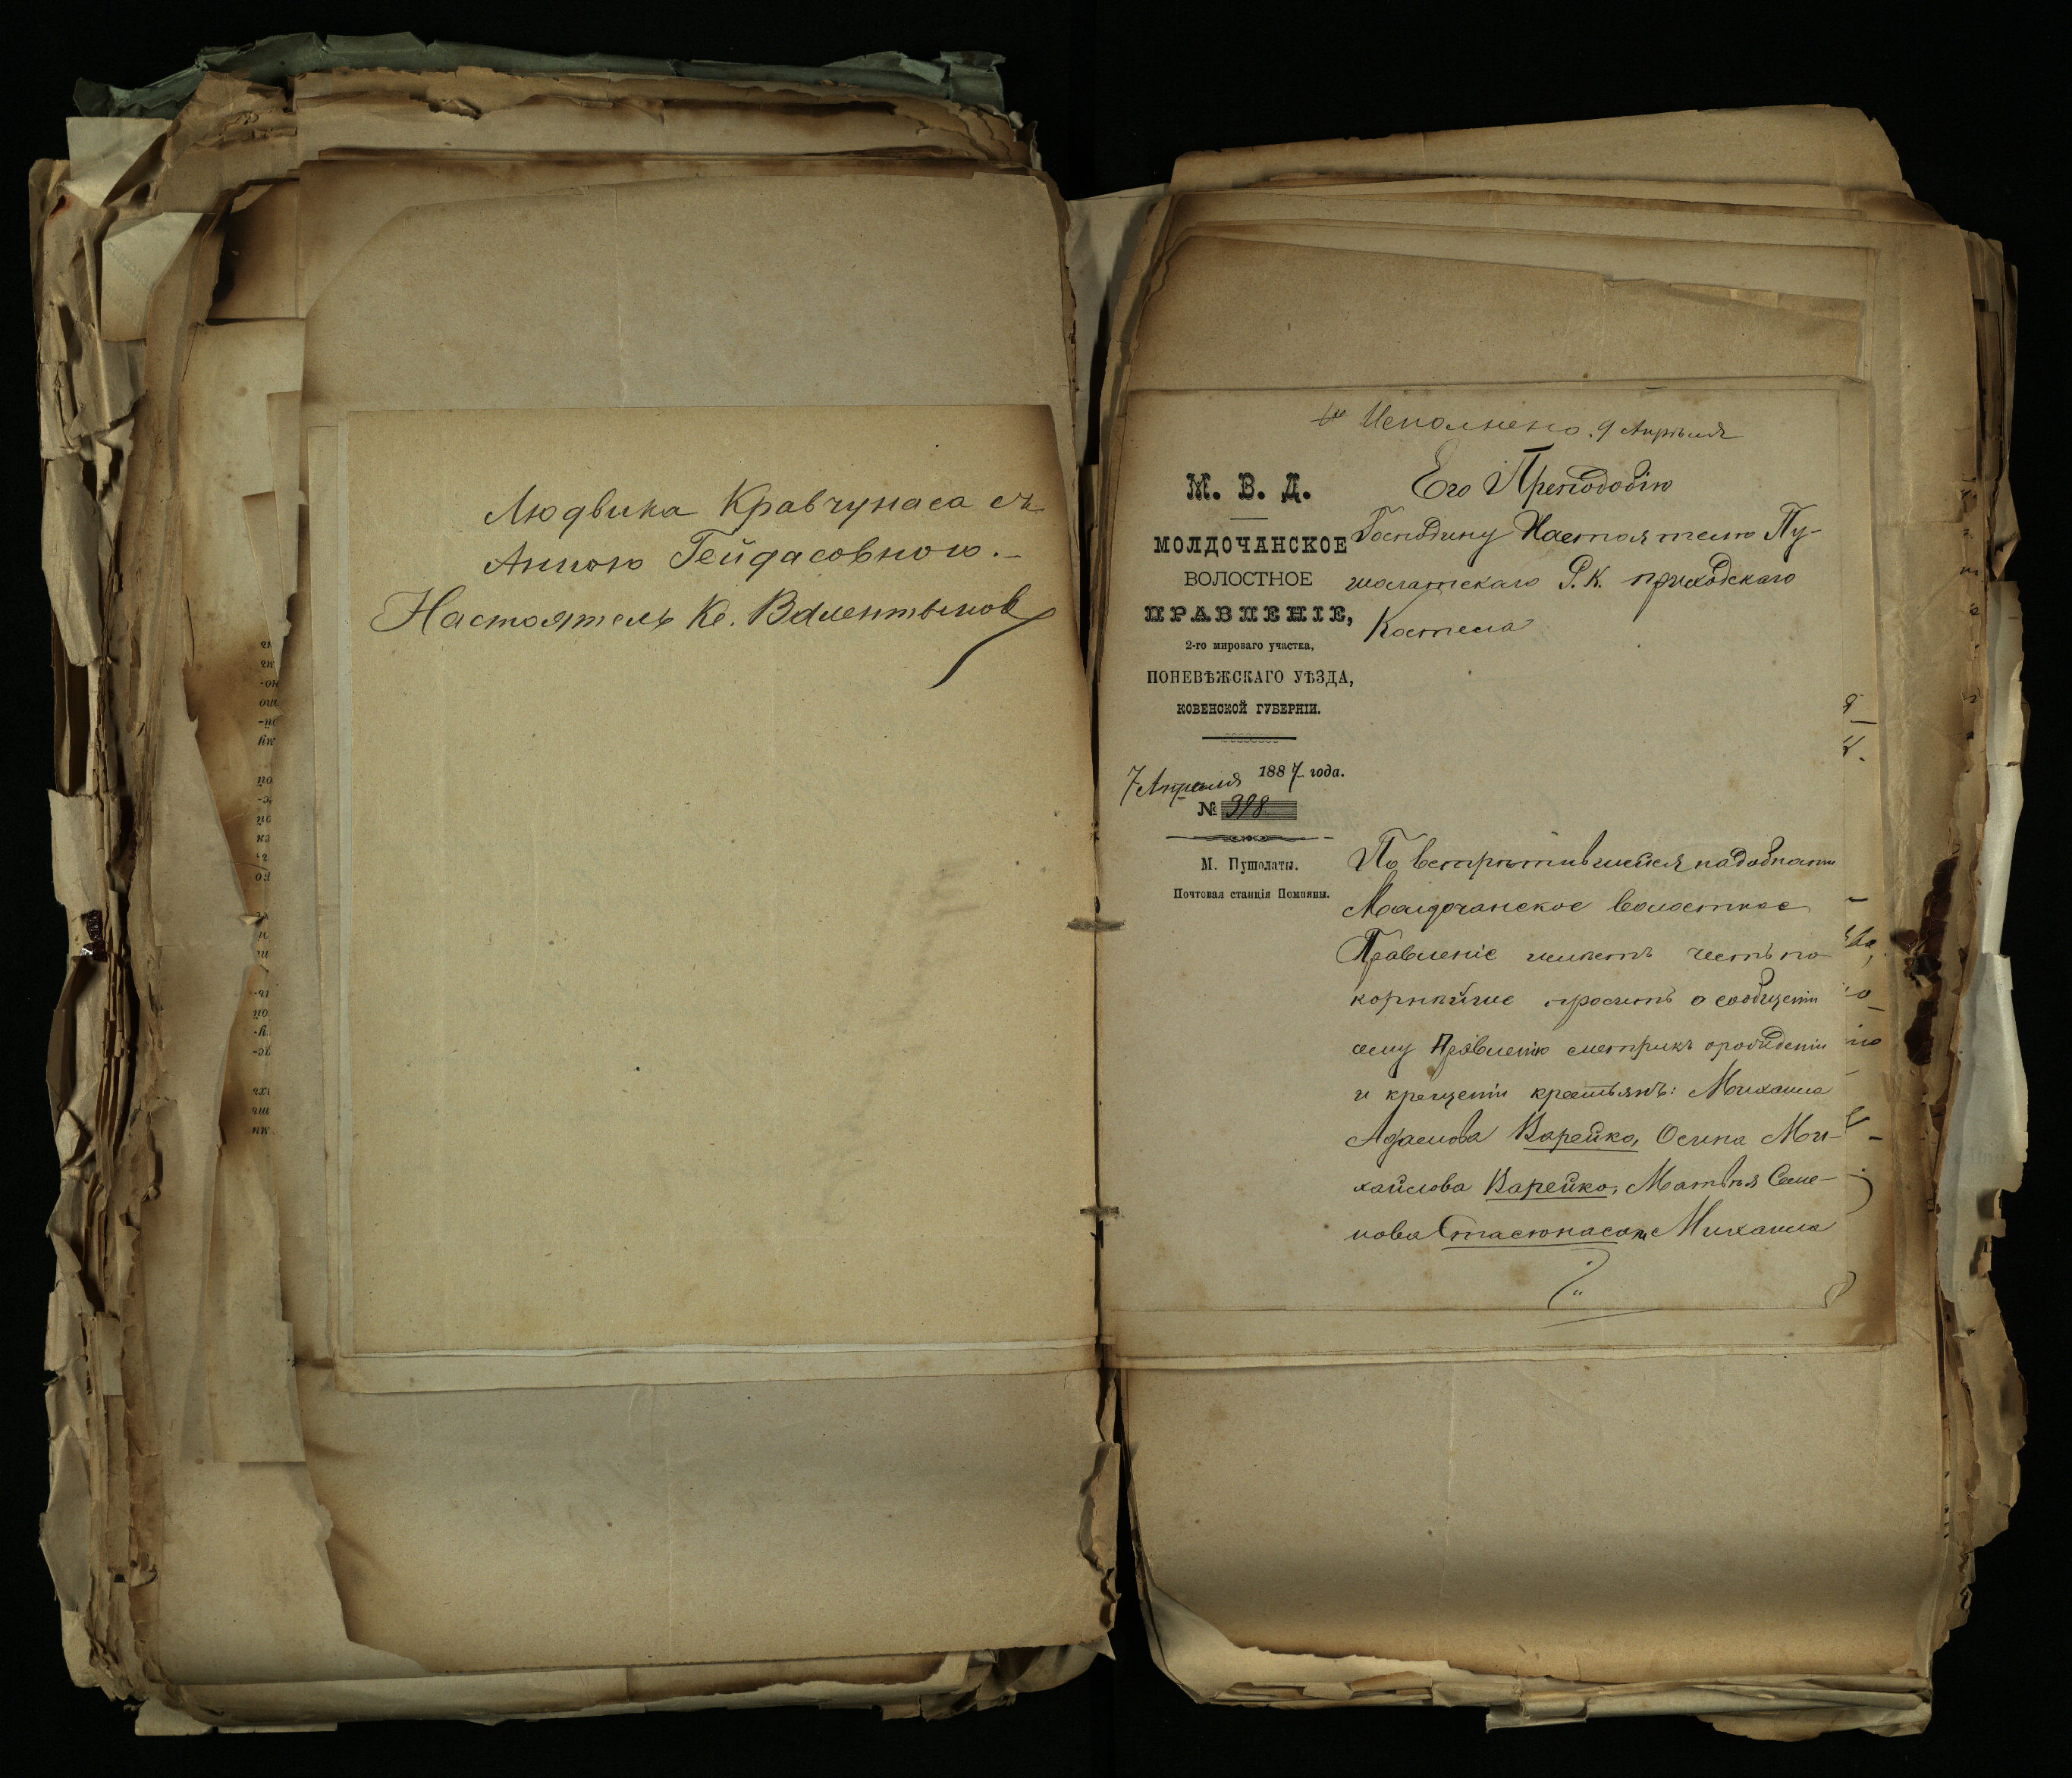 Людвика Кравчунаса съ
Анною Гейдасовною.–
Настоятель Кс. Валентыновъ
Исполнено. 9 Апрѣля
М. В. Д.
МОЛДОЧАНСКОЕ
ВОЛОСТНОЕ
ПРАВЛЕНІЕ,
2-го мироваго участка,
ПОНЕВѢЖСКАГО УѢЗДА,
КОВЕНСКОЙ ГУБЕРНІИ.
7 Апреля 1887 года.
№ 398
М. Пушолаты.
Почтовая станція Помпяны.
Его Преподобію
Господину Настоятелю Пу-
шолатскаго Р. К. приходскаго
Костела
По встрѣтившейся надобности
Молдочанское волостное
Правленіе имѣетъ честь по
корнѣйше просить о сообщеніи
сему Правленію метрикъ о рожденіи
и крещеніи крестьянъ: Михаила
Адамова Варейко, Осипа Ми-
хайлова Варейко, Матвѣя Семе-
нова Стасюнаса и Михаила